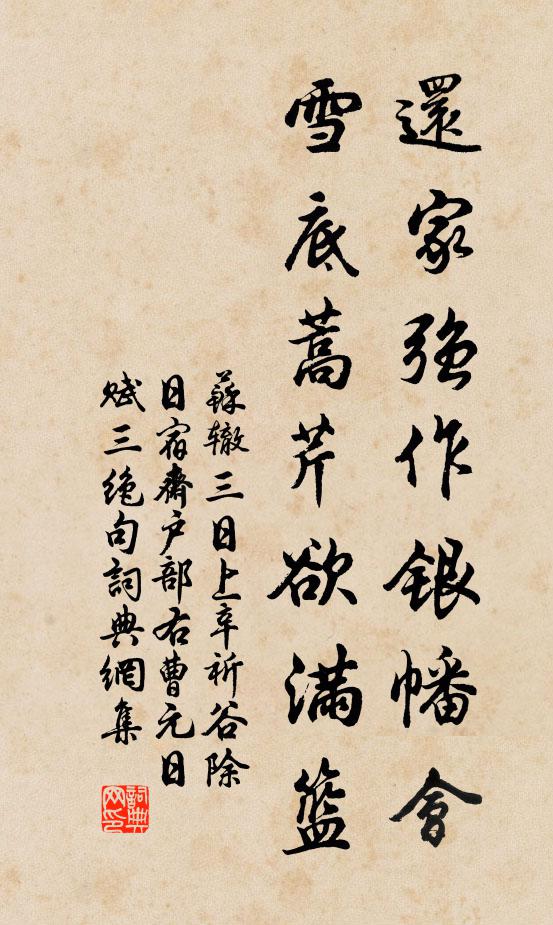 還家強作銀幡會
雪底蒿芹欲滿籃
蘇辙三日上辛祈谷除
日宿齋户部右曹元日
赋三绝句詞典網集
詞典
网印